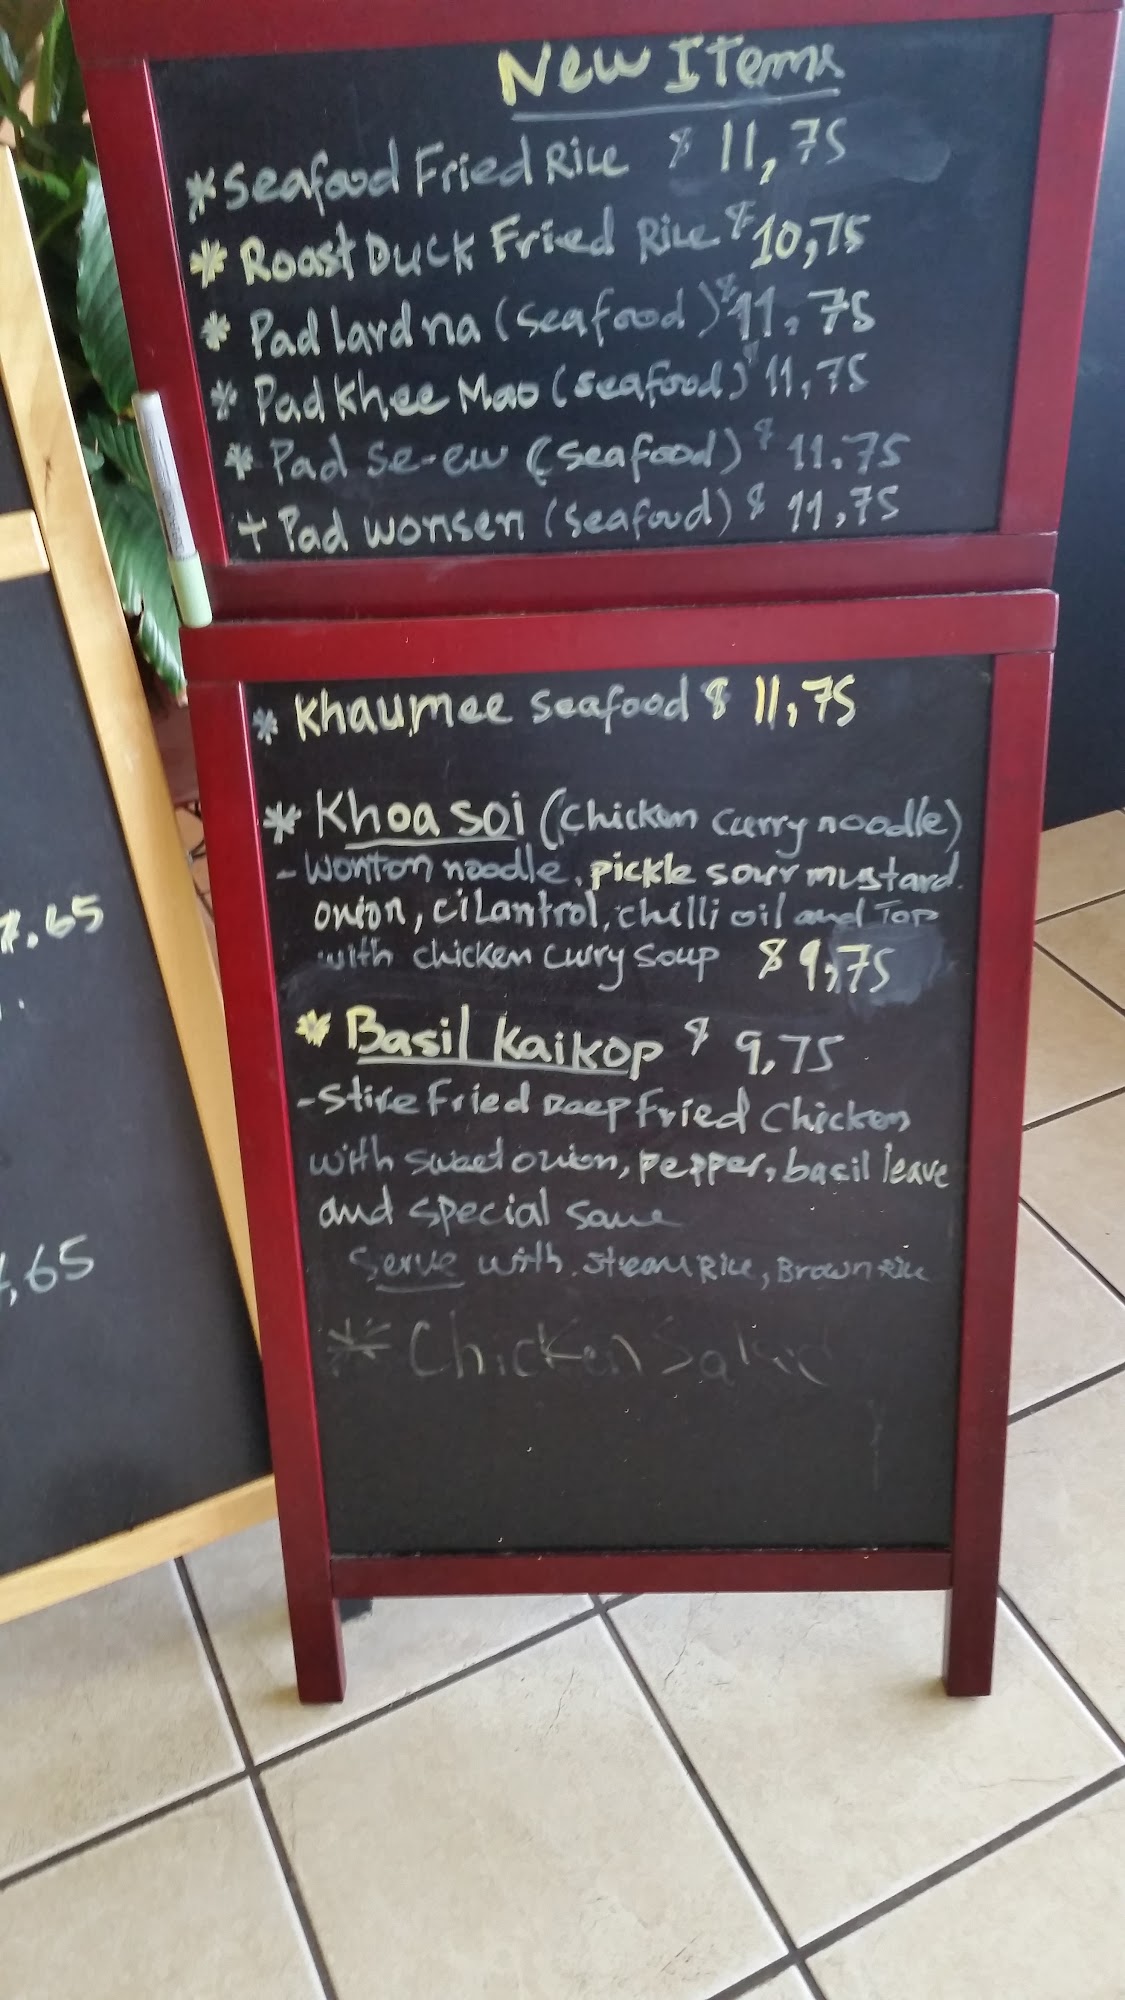 New Items
* Seafood Fried Rice $ 11,75
* Roast Duck Fried Rice $ 10,75
* Pad lard na (seafood) $ 11,75
* Pad Khee Mao (seafood) $ 11,75
* Pad se-ew (seafood) $ 11.75
+ Pad wonsen (seafood) $ 11,75
* Khaumee seafood $ 11,75
* Khoa soi (chicken curry noodle)
- wonton noodle, pickle sour mustard.
onion, cilantrol, chilli oil and Top
with chicken curry soup $ 9,75
* Basil Kaikop $ 9,75
- Stire Fried Deep Fried Chicken
with sweet onion, pepper, basil leave
and special saue
Serve with steam Rice, Brown Rice
* Chicken
.65
,65